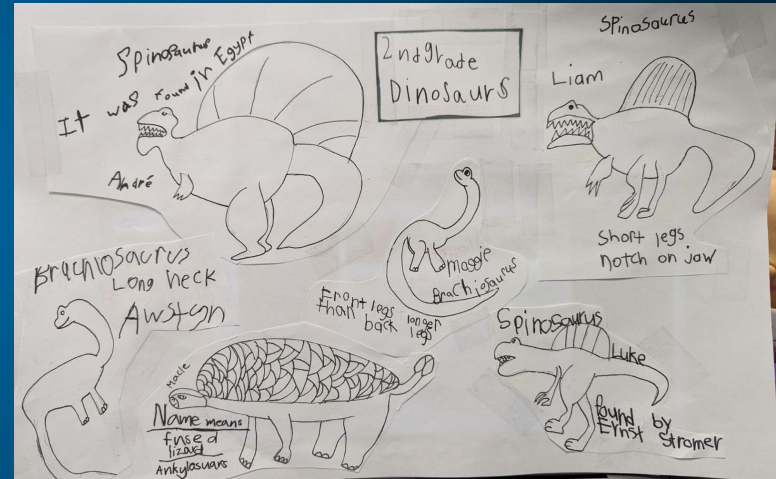 Spinosaurus
It was found in Egypt
André
2nd grade
Dinosaurs
Spinosaurus
Liam
Short legs
notch on jaw
Brachiosaurus
Long neck
Awstyn
Maggie
Brachiosaurus
Front legs longer
than back legs
Macie
Name means
fused
lizard
Ankylosuars
Spinosaurus
Luke
found by
Ernst Stromer